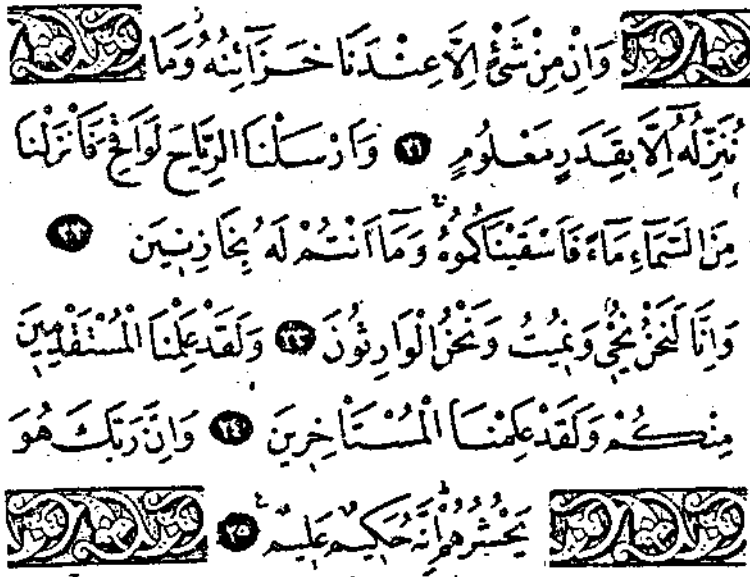 وَاِنْ مِنْ شَيْءٍ اِلَّا عِنْدَنَا خَزَٓائِنُهُ وَمَا
نُنَزِّلُهُٓ اِلَّا بِقَدَرٍ مَعْلُومٍ ﴿٢١﴾ وَاَرْسَلْنَا الرِّيَاحَ لَوَاقِحَ فَاَنْزَلْنَا
مِنَ السَّمَٓاءِ مَٓاءً فَاَسْقَيْنَاكُمُوهُ وَمَٓا اَنْتُمْ لَهُ بِخَازِنِينَ ﴿٢٢﴾
وَاِنَّا لَنَحْنُ نُحْيِ وَنُمِيتُ وَنَحْنُ الْوَارِثُونَ ﴿٢٣﴾ وَلَقَدْ عَلِمْنَا الْمُسْتَقْدِمِينَ
مِنْكُمْ وَلَقَدْ عَلِمْنَا الْمُسْتَأْخِرِينَ ﴿٢٤﴾ وَاِنَّ رَبَّكَ هُوَ
يَحْشُرُهُمْ اِنَّهُ حَكِيمٌ عَلِيمٌ ﴿٢٥﴾